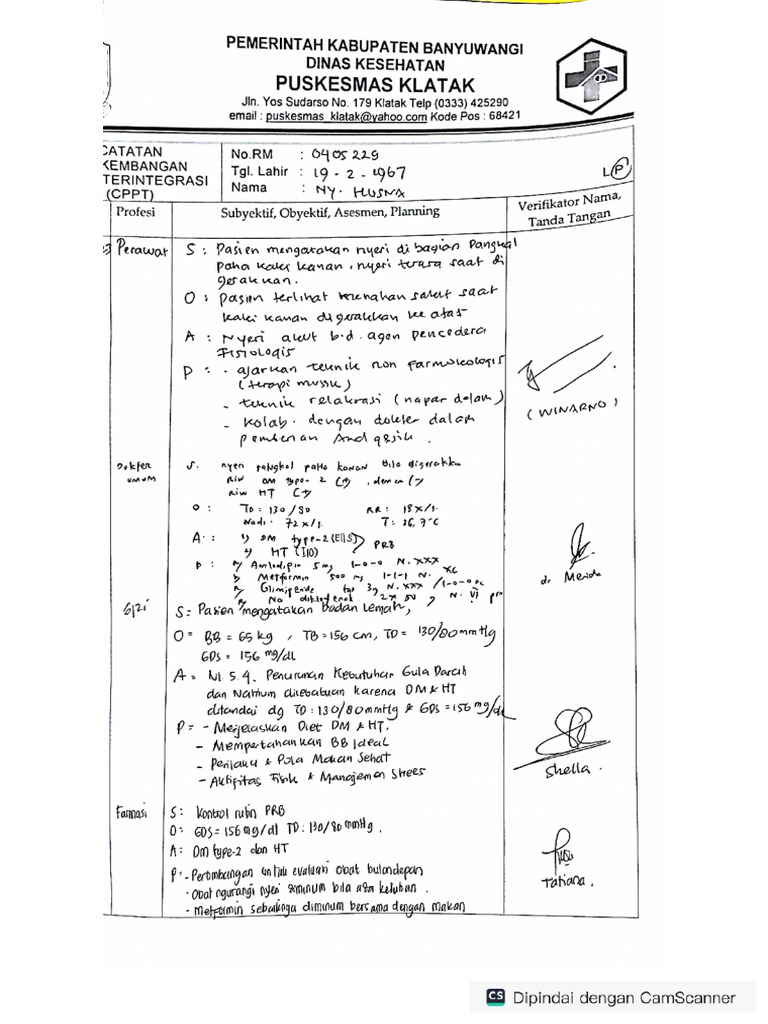 PEMERINTAH KABUPATEN BANYUWANGI
DINAS KESEHATAN
PUSKESMAS KLATAK
Jln. Yos Sudarso No. 179 Klatak Telp (0333) 425290
email : puskesmas_klatak@yahoo.com Kode Pos : 68421
CATATAN
KEMBANGAN
TERINTEGRASI
(CPPT)
No.RM : 0405229
Tgl. Lahir : 19-2-1967
Nama : NY. HUSNA
L P
Profesi
Subyektif, Obyektif, Asesmen, Planning
Verifikator Nama,
Tanda Tangan
Perawat
S : Pasien mengatakan nyeri di bagian Pangkal
paha kaki kanan, nyeri terasa saat di
gerakkan.
O : pasien terlihat menahan sakit saat
kaki kanan digerakkan ke atas
A : Nyeri akut b.d. agen pencedera
Fisiologis
P : - ajarkan teknik non farmakologis
(terapi musik)
- teknik relaksasi (napas dalam)
- kolab. dengan dokter dalam
pemberian Analgesik.
(WINARNO)
Dokter
umum
S. nyeri pangkal paha kanan bila digerakkan
Riw DM type-2 (+), demam (-)
riw HT (+)
O : TD = 130/80 RR : 18x/1.
Nadi. 72x/1. T : 36,7°C
A : 1) DM type-2 (E11.5)
2) HT (I10) PRB
P : R/ Amlodipin 5 mg 1-0-0 N. XXX
R/ Metformin 500 mg 1-1-1 N. XC
R/ Glimipiride 3g N. XXX /1-0-0
R/ Na diklofenak 2x50, N. VI
dr. Merida
Gizi
S = Pasien mengatakan badan lemah,
O = BB = 65 kg, TB = 156 cm, TD = 130/80 mmHg
GDS = 156 mg/dl
A = NI 5.4. Penurunan Kebutuhan Gula Darah
dan Natrium disebabkan karena DM & HT
ditandai dg TD : 130/80 mmHg & GDS = 156 mg/dl
P = - Menjelaskan Diet DM & HT.
- Mempertahankan BB Ideal
- Perilaku & Pola Makan Sehat
- Aktifitas Fisik & Manajemen Strees
Shella.
Farmasi
S : Kontrol rutin PRB
O : GDS = 156 mg/dl TD : 130/80 mmHg.
A : DM type-2 dan HT
P : - Pertimbangan untuk evaluasi obat bulan depan
- Obat ngurangi nyeri diminum bila ada keluhan.
- Metformin sebaiknya diminum bersama dengan makan
Tatiana.
CS Dipindai dengan CamScanner